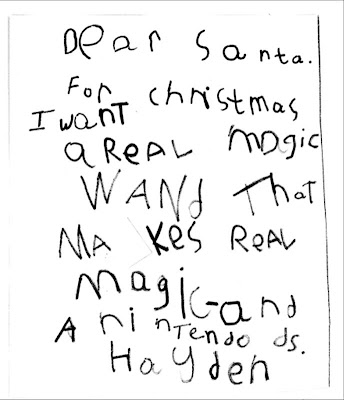 Dear Santa.
For christmas
I want
a REAL magic
WANd That
MA kes REAL
magic-and
A nintendo ds.
Hayden